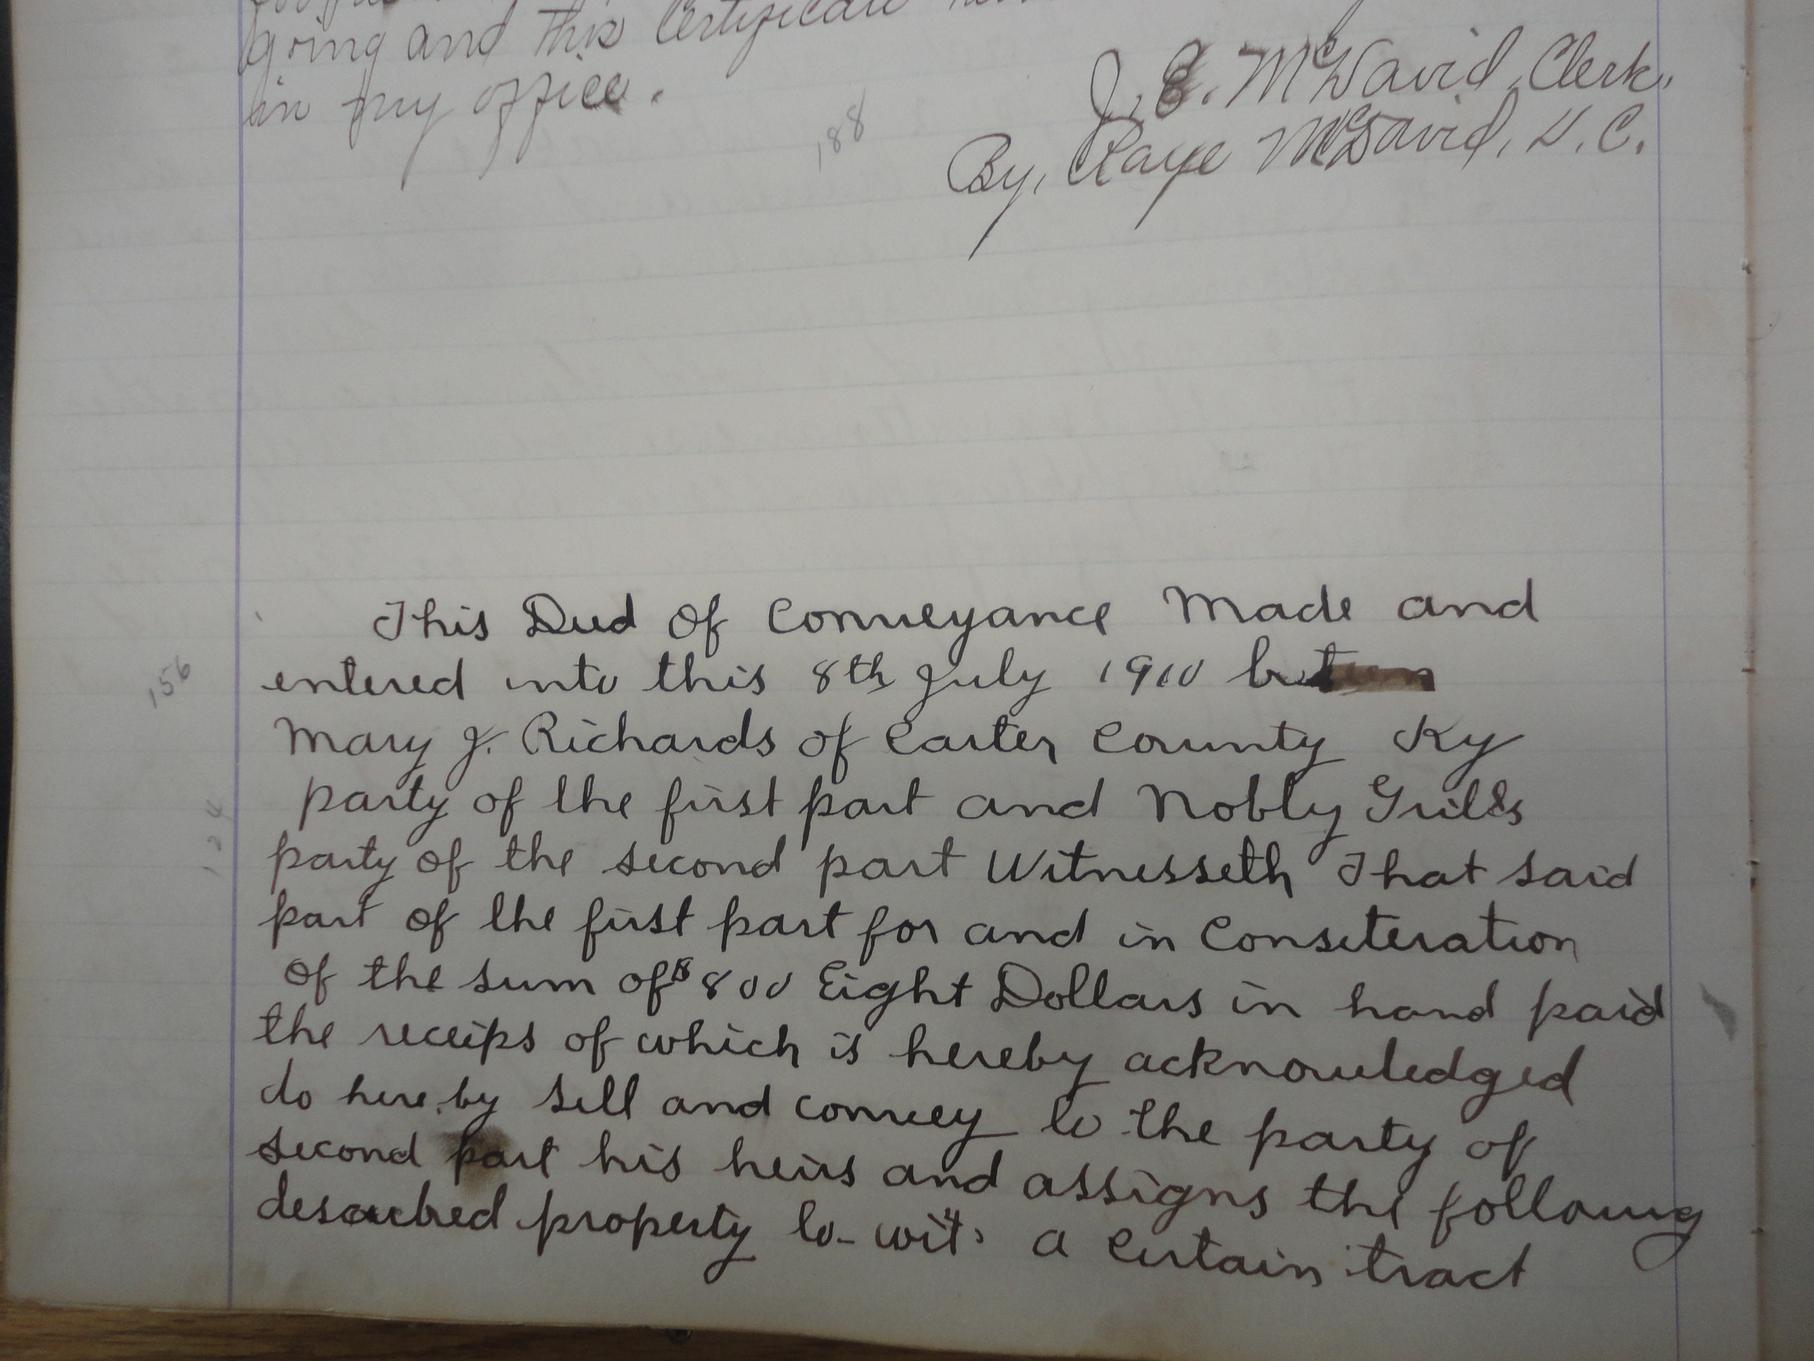 going and this Certificate
in my office.
J. E. McDavid, Clerk.
By, Raye McDavid, D. C.
188
This Deed Of Conveyance Made and
entered into this 8th July 1910 between
Mary J. Richards of Carter County Ky
party of the first part and Nobly Grills
party of the second part Witnesseth That said
part of the first part for and in Consiteration
Of the sum of $800 Eight Dollars in hand paid
the receips of which is hereby acknowledged
do here by sell and convey to the party of
second part his heirs and assigns the following
descrebed property to-wit: a certain tract
156
124